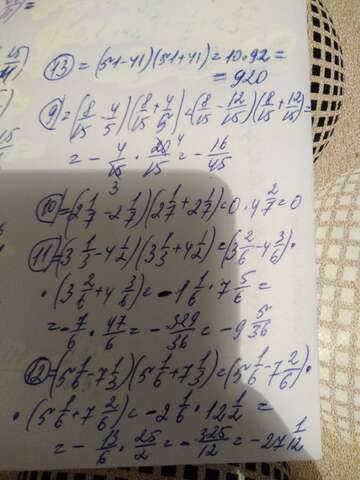 13) = (51-41)(51+41) = 10·92 =
= 920
9) = (8/15 - 4/5)(8/15 + 4/5) = (8/15 - 12/15)(8/15 + 12/15) =
= - 4/15 · 20/15 = - 16/45
4
3
10) = (2 1/7 - 2 1/7)(2 1/7 + 2 1/7) = 0·4 2/7 = 0
11) = (3 1/3 - 4 1/2)(3 1/3 + 4 1/2) = (3 2/6 - 4 3/6)·
·(3 2/6 + 4 3/6) = - 1 1/6 · 7 5/6 =
= - 7/6 · 47/6 = - 329/36 = - 9 5/36
12) = (5 1/6 - 7 1/3)(5 1/6 + 7 1/3) = (5 1/6 - 7 2/6)·
·(5 1/6 + 7 2/6) = - 2 1/6 · 12 1/2 =
= - 13/6 · 25/2 = - 325/12 = - 27 1/12